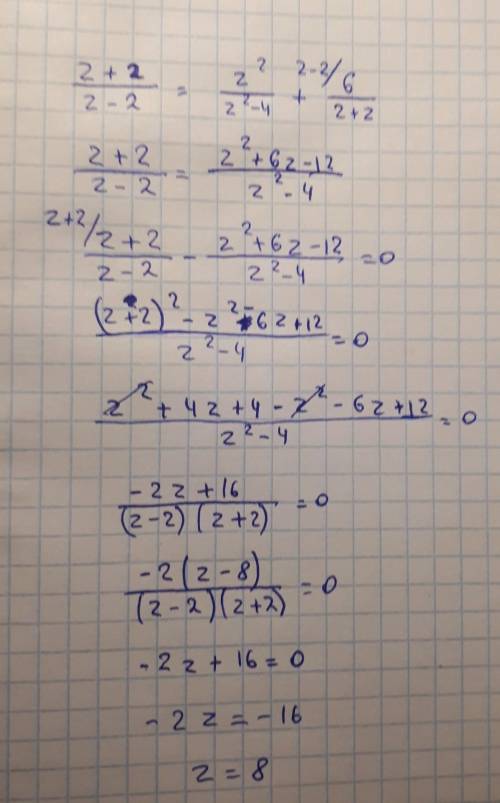 (z + 2)/(z - 2) = z²/(z² - 4) + ^{z-2/} 6/(z + 2)
(z + 2)/(z - 2) = (z² + 6z - 12)/(z² - 4)
^{z+2/} (z + 2)/(z - 2) - (z² + 6z - 12)/(z² - 4) = 0
((z + 2)² - z² - 6z + 12)/(z² - 4) = 0
(z² + 4z + 4 - z² - 6z + 12)/(z² - 4) = 0
(-2z + 16)/((z - 2)(z + 2)) = 0
(-2(z - 8))/((z - 2)(z + 2)) = 0
-2z + 16 = 0
-2z = -16
z = 8